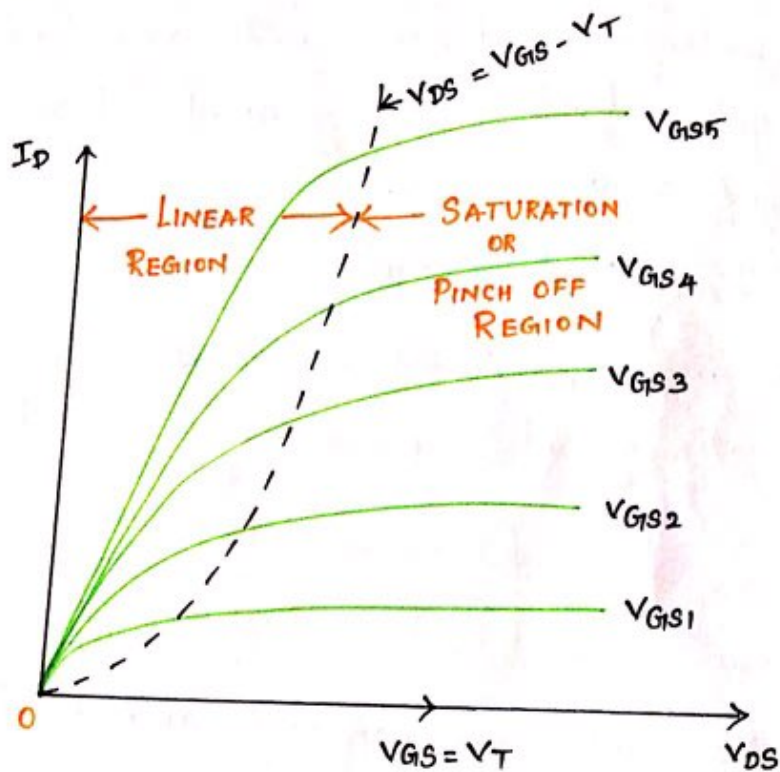 VDS = VGS - VT
VGS5
ID
LINEAR
REGION
SATURATION
OR
PINCH OFF
REGION
VGS4
VGS3
VGS2
VGS1
O
VGS = VT
VDS